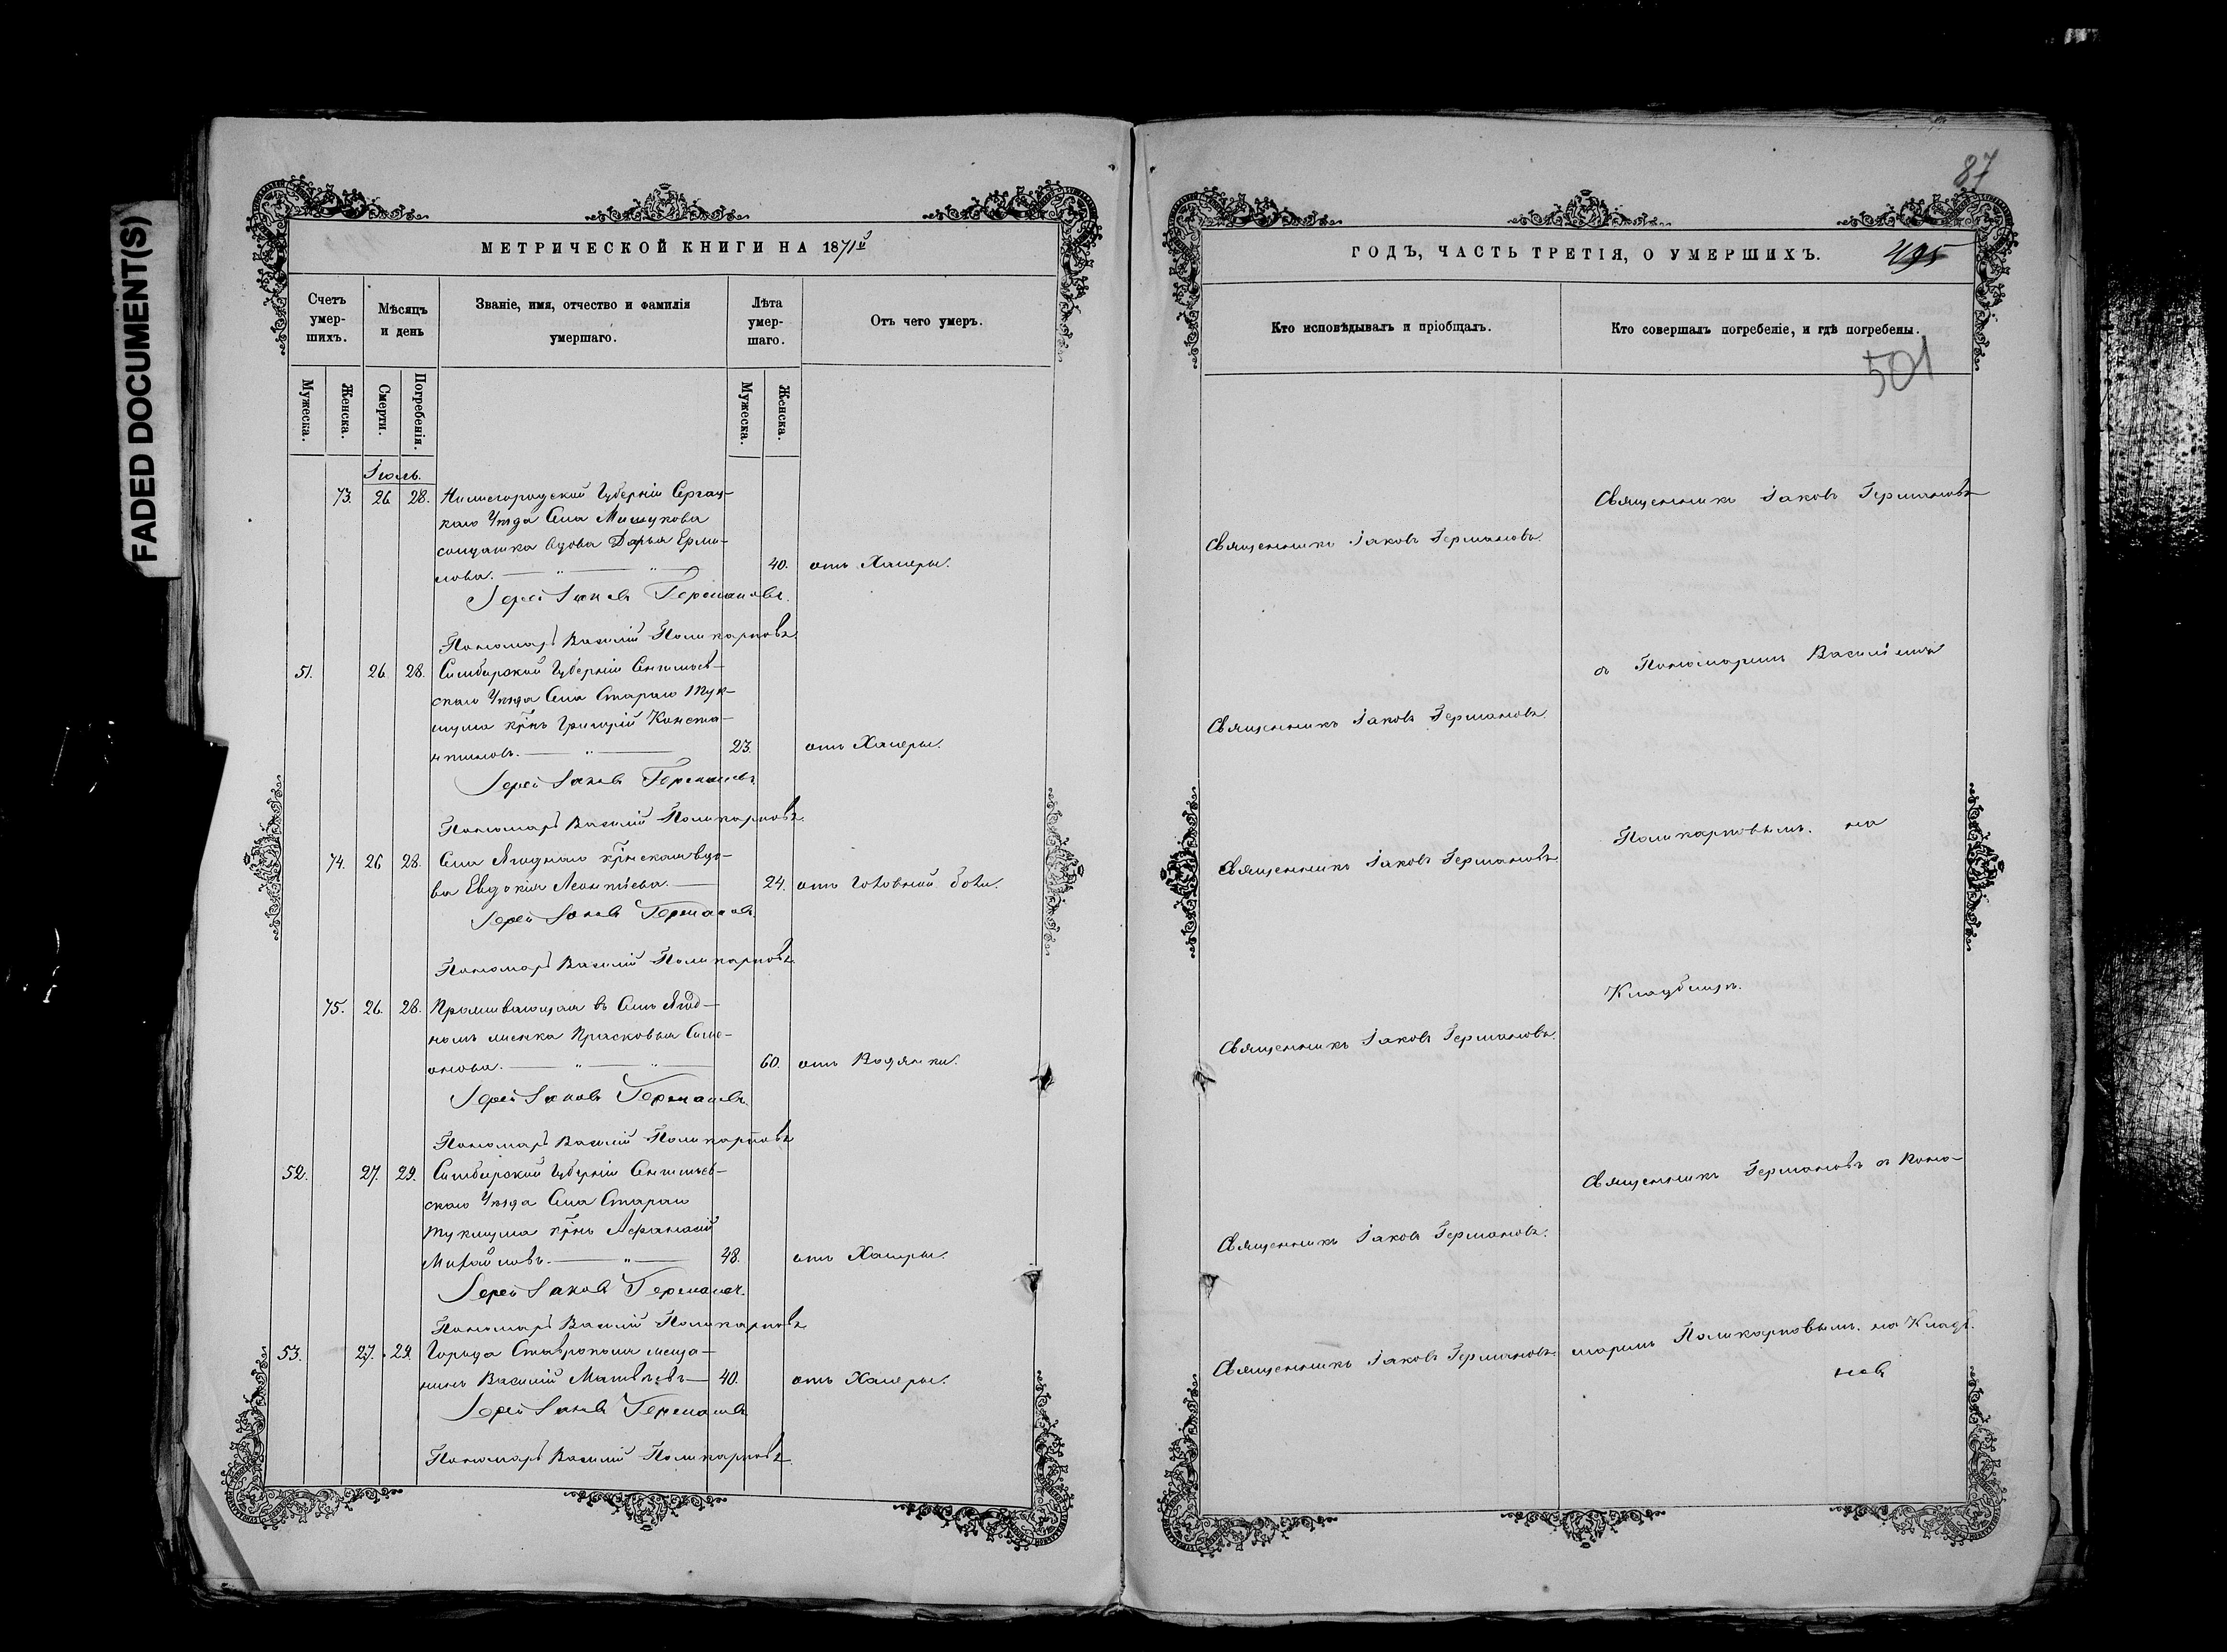 FADED DOCUMENT(S)
МЕТРИЧЕСКОЙ КНИГИ НА 1871й
Счетъ умер-шихъ.
Мѣсяцъ и день
Званіе, имя, отчество и фамилія умершаго.
Лѣта умер-шаго.
Отъ чего умеръ.
Мужеска.
Женска.
Смерти.
Погребенія.
Мужеска.
Женска.
Іюль.
73. 26 28. Нижегородской Губерніи Сергач-
скаго Уѣзда Села Мишукова
солдатка вдова Дарья Ерми-
лова. 40. отъ Холеры.
Іерей Іаковъ Германовъ.
Пономарь Василій Поликарповъ.
51. 26. 28. Симбирской Губерніи Сенгилеев-
скаго Уѣзда Села Стараго Тук-
шума крнъ Григорій Конста-
нтиновъ. 23. отъ Холеры.
Іерей Іаковъ Германовъ.
Пономарь Василій Поликарповъ.
74. 26 28. Села Ягоднаго крнская вдо-
ва Евдокія Леонтіева. 24. отъ Головной боли.
Іерей Іаковъ Германовъ.
Пономарь Василій Поликарповъ.
75. 26. 28. Проживающая въ Селѣ Ягод-
номъ Прасковья Симе-
онова. 60. отъ Водянки.
Іерей Іаковъ Германовъ.
Пономарь Василій Поликарповъ
52. 27. 29. Симбирской Губерніи Сенгилеев-
скаго Уѣзда Села Стараго
Тукшума крнъ Афанасій
Михайловъ. 48. отъ Холеры.
Іерей Іаковъ Германовъ.
Пономарь Василій Поликарповъ
53. 27. 29. Города Ставрополя меща-
нинъ Василій Матвѣевъ 40. отъ Холеры.
Іерей Іаковъ Германовъ
Пономарь Василій Поликарповъ.
87
ГОДЪ, ЧАСТЬ ТРЕТІЯ, О УМЕРШИХЪ.
495
Кто исповѣдывалъ и пріобщалъ.
Кто совершалъ погребеніе, и гдѣ погребены.
501
Священникъ Іаковъ Германовъ
Священникъ Іаковъ Германовъ.
съ Пономаремъ Василіемъ
Священникъ Іаковъ Германовъ.
Поликарповымъ. на
Священникъ Іаковъ Германовъ
Кладбищѣ.
Священникъ Іаковъ Германовъ.
Священникъ Германовъ съ Поно-
Священникъ Іаковъ Германовъ.
маремъ Поликарповымъ. на Кладб.
Священникъ Іаковъ Германовъ